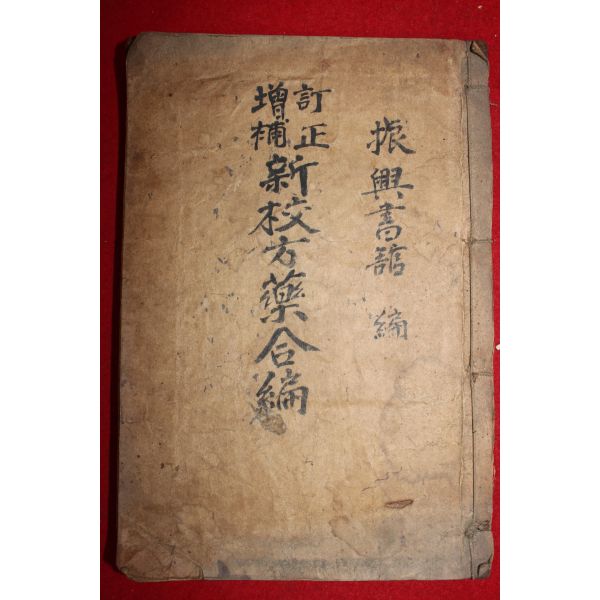 振興書舘 編
訂正
增補
新校方藥合編